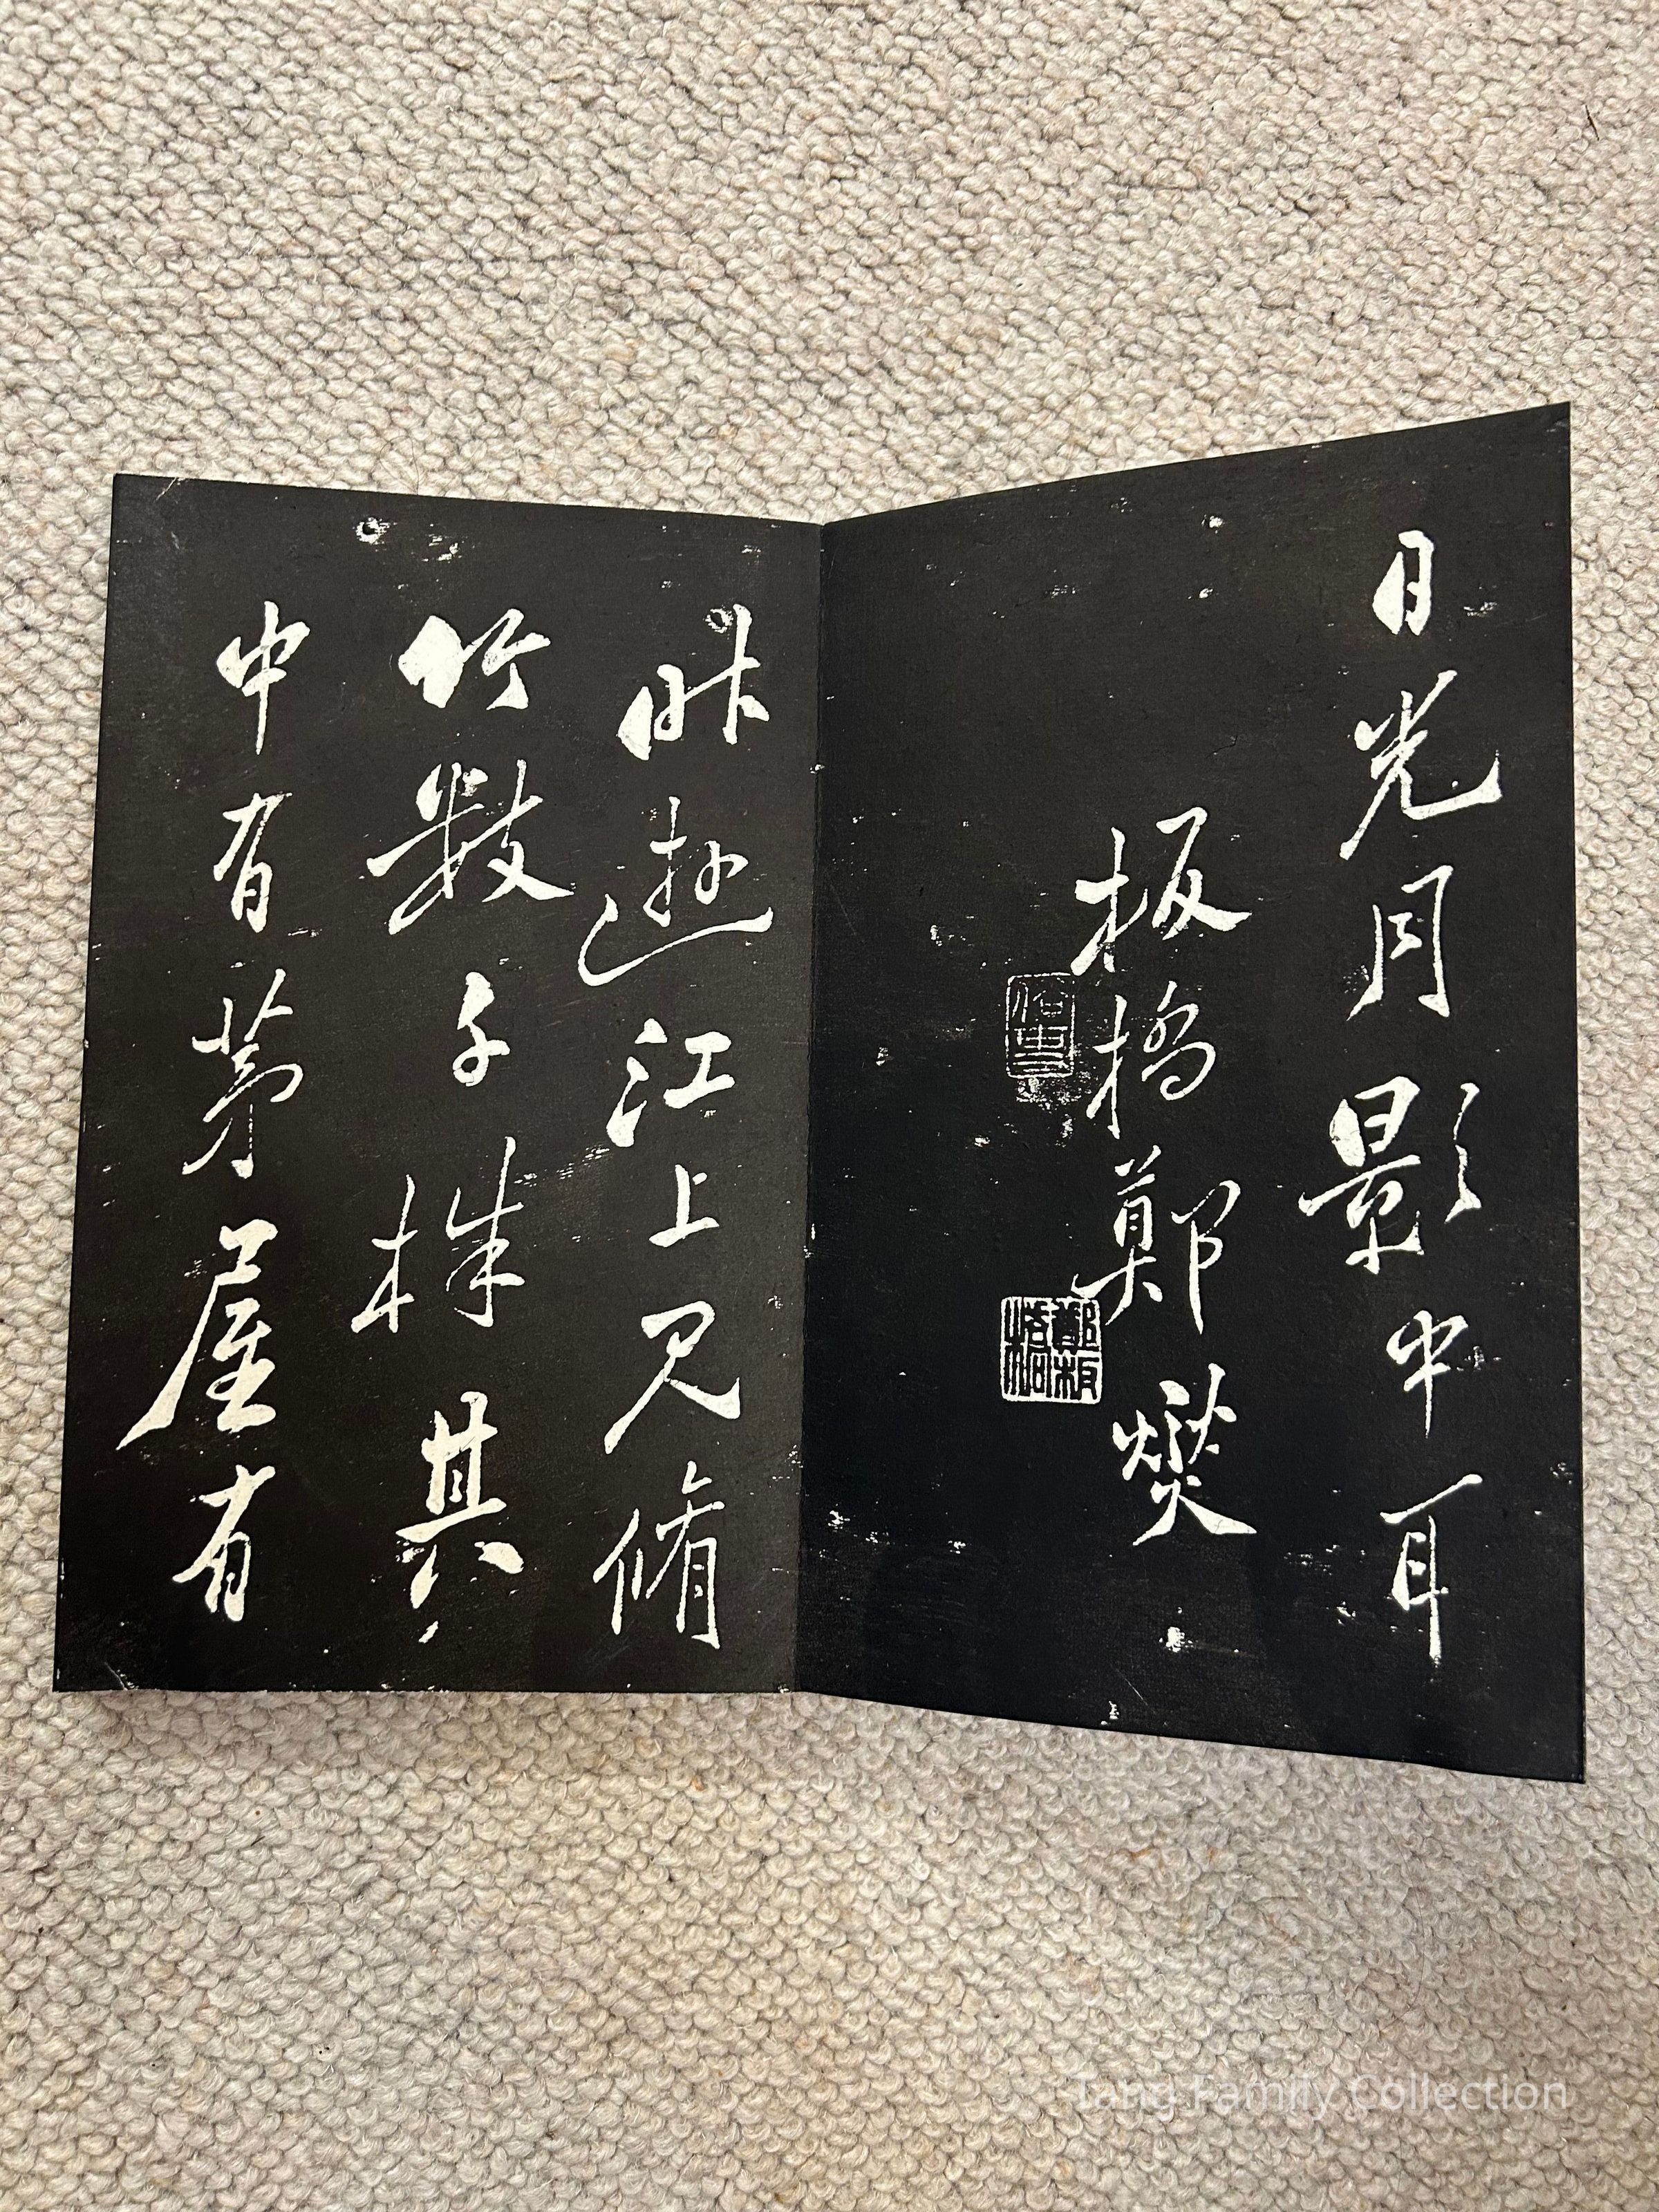 日光月影中耳
板橋鄭燮
鄭板橋
昨遊江上見脩
竹數千株其
中有茅屋有
Tang Family Collection